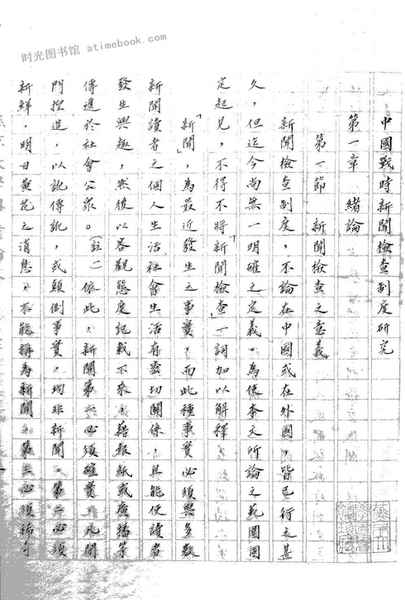 时光图书馆 atimebook.com
中國戰時新聞檢查制度研究
第一章 緒論
第一節 新聞檢查之意義
新聞檢查制度,不論在中國或在外國,皆已行之甚
久,但迄今尚無一明確之定義。為使本文所論之範圍固
定起見,不得不將「新聞檢查」一詞加以解釋。
「新聞」,為最近發生之事實。而此種事實必須與多數
新聞讀者之個人生活社會生活有密切關係,且能使讀者
發生興趣,然後以客觀態度記載下來,藉報紙或廣播等
傳遞於社會公眾。(註一)依此,新聞第一必須確實,凡閉
門捏造,以訛傳訛,或顛倒事實,均非新聞。第二必須
新鮮,明日黃花之消息,不能稱為新聞。第三必須